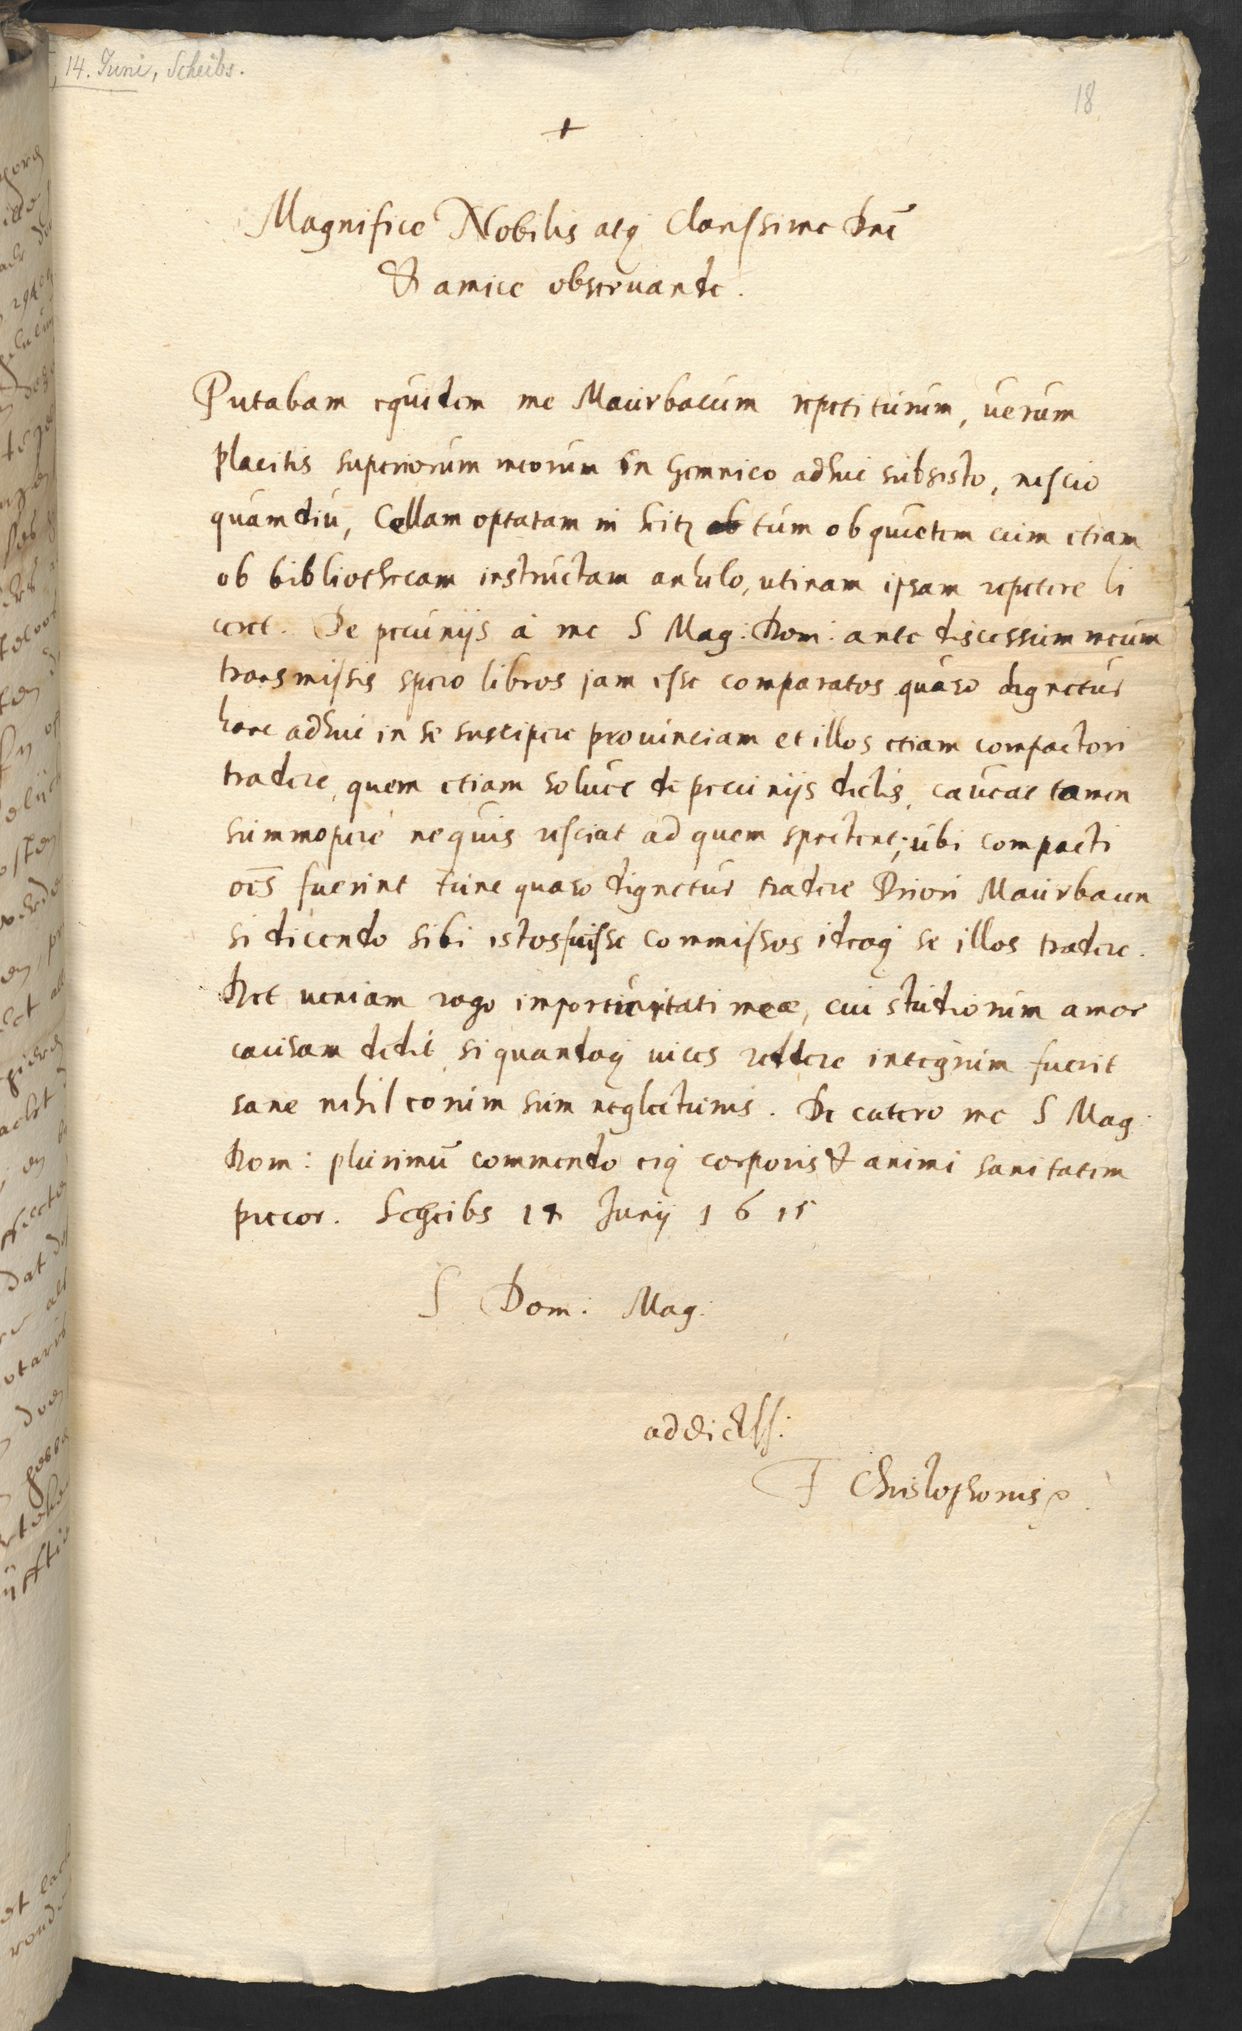 14. Juni, Scheibs.
18
+
Magnifice Nobilis atq Clarissime Dne
& amice observande.
Putabam equidem me Maurbacum repetiturum, verum
placitis superiorum meorum in Gemnico adhuc subsisto, nescio
quamdiu, Cellam optatam in tum ob quietem cum etiam
ob bibliothecam instructam anhelo, utinam ipsam repetere li
ceret. De pecunijs à me S Mag: Dom: ante discessum meum
transmissis spero libros jam esse comparatos quæso dignetur
hanc adhuc in se suscipere provinciam et illos etiam compactori
tradere, quem etiam solvet de pecunijs dictis, caveat tamen
summopere ne quis resciat ad quem spectent; ubi compacti
oēs fuerint tunc quæso dignetur tradere Priori Maurbacen
si dicendo sibi istos fuisse commissos ideoq se illos tradere.
Det veniam rogo importunitati meæ, cui studiorum amor
causam dedit, si quandoq vices reddere integrum fuerit
sane nihil eorum sum neglecturus. De cætero me S Mag
Dom: plurimū commendo eiq corporis & animi sanitatem
precor. Scheibs 14 Junij 1615
S Dom: Mag:
addictss:
F Christophorus